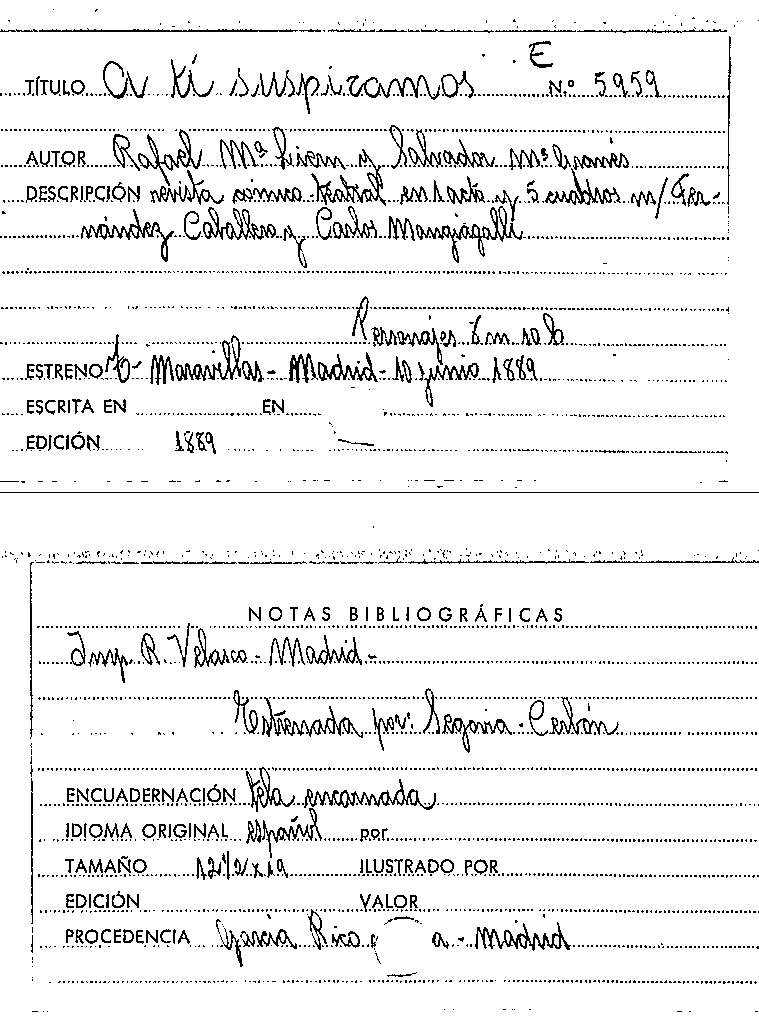 E
TÍTULO A tí suspiramos N.º 5959
AUTOR Rafael Mª Liern y Salvador Mª Granés
DESCRIPCIÓN revista cómico-teatral en 1 acto y 5 cuadros m/ Fer-
nández Caballero y Carlos Mangiagalli
Personajes 7 m 10 h
ESTRENO Tº Maravillas - Madrid - 10 junio 1889
ESCRITA EN EN
EDICIÓN 1889
NOTAS BIBLIOGRÁFICAS
Imp. R. Velasco - Madrid -
Estrenada por: Segovia - Cerbón
ENCUADERNACIÓN tela encarnada
IDIOMA ORIGINAL español por
TAMAÑO 12 1/2 x 19 ILUSTRADO POR
EDICIÓN VALOR
PROCEDENCIA García Rico a - Madrid